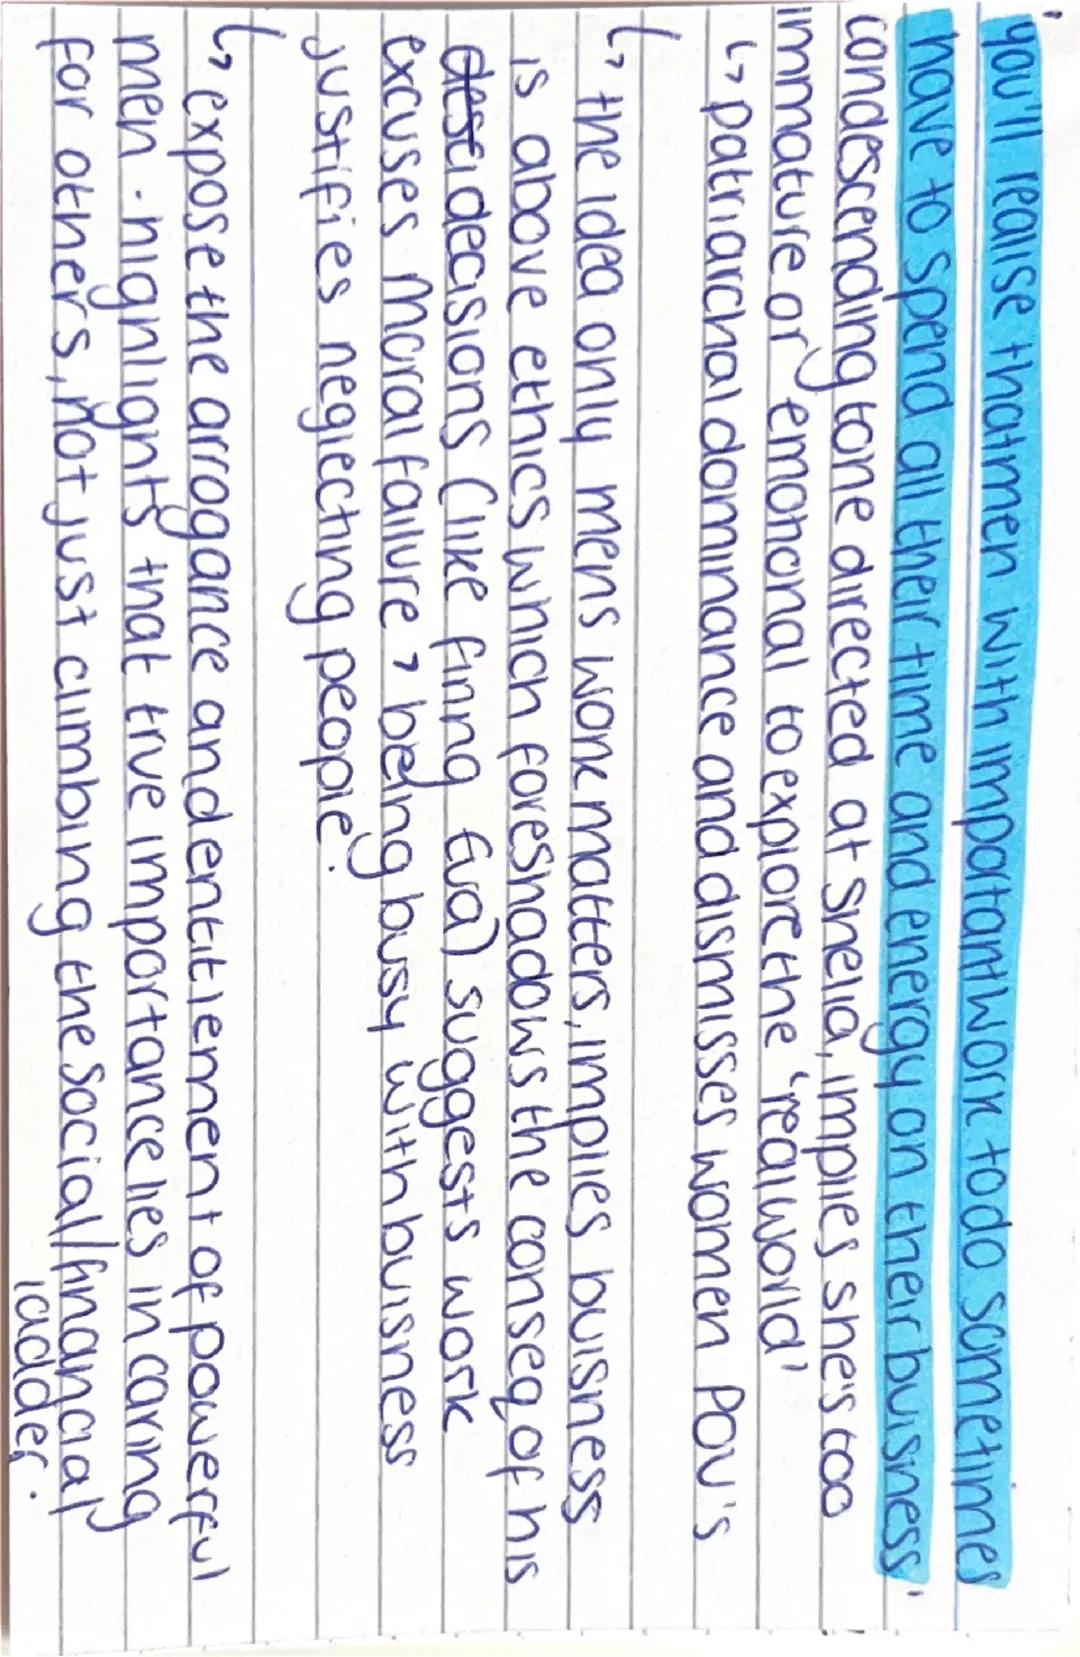 'you'll realise that men with important work to do sometimes
have to spend all their time and energy on their buisness'
condescending tone directed at Shelia, implies she's too
immature or emotional to explore the 'real world'
↳ patriarchal dominance and dismisses women POV's
↳ the idea only mens work matters, implies buisness
is above ethics which foreshadows the conseq of his
desci decisions (like firing Eva) suggests work
excuses moral failure, being busy with buisness
justifies neglecting people.
↳ expose the arrogance and entitlement of powerful
men - highlights that true importance lies in caring
for others, not just climbing the social/financial
ladder.